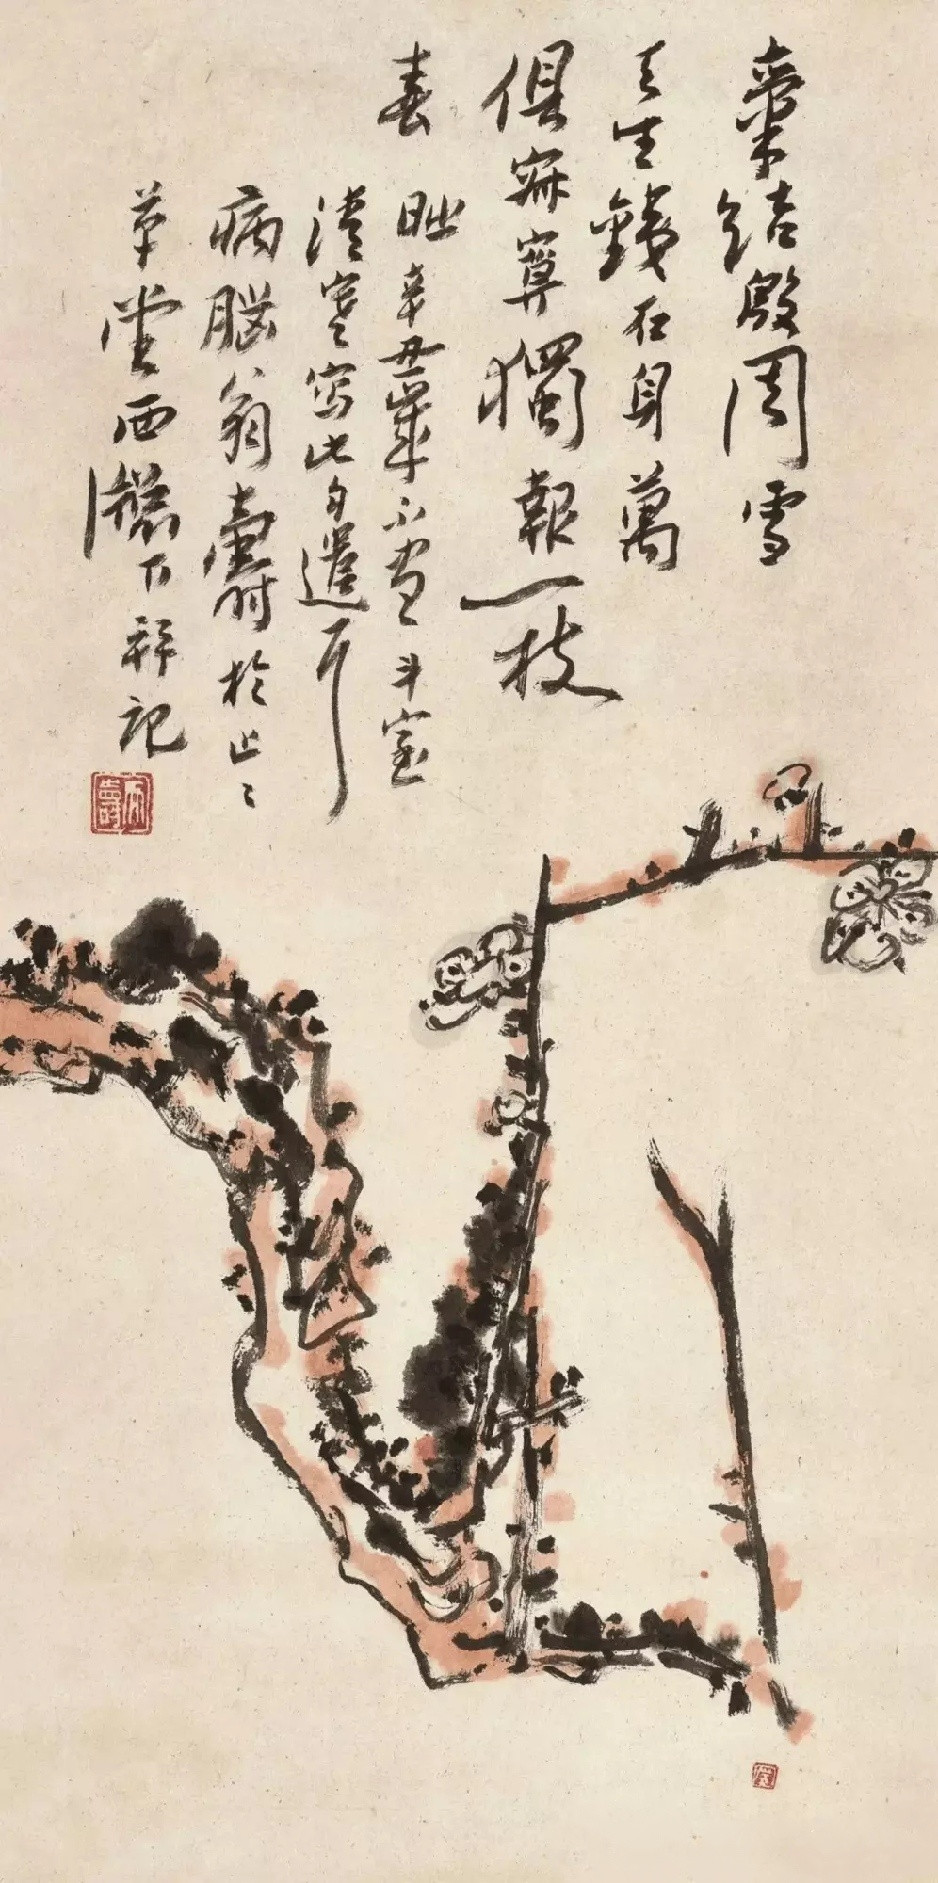 結殷周雪
天生鐵石身萬
俱寂寞獨報一枝
春 辛丑歲斗室
清寒寫此自遣耳
病腦翁壽於止〻
草堂西牕下并記